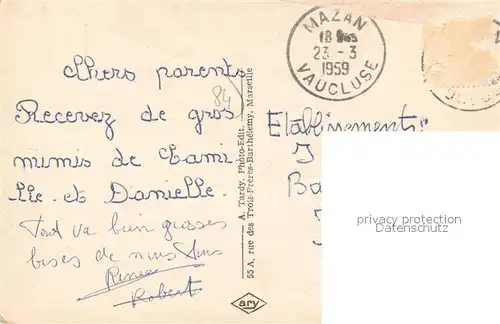 MAZAN
18
23 - 3
1959
VAUCLUSE
Chers parents
84
Recevez de gros
mimis de Cami
lle et Danielle.
Tout va bien grosses
bises de nous tous
Renee
Robert
A. Tardy, Photo-Edit.
55 A, rue des Trois-Frères-Barthélemy, Marseille
ary
Etablissements
J
Ba
privacy protection
Datenschutz